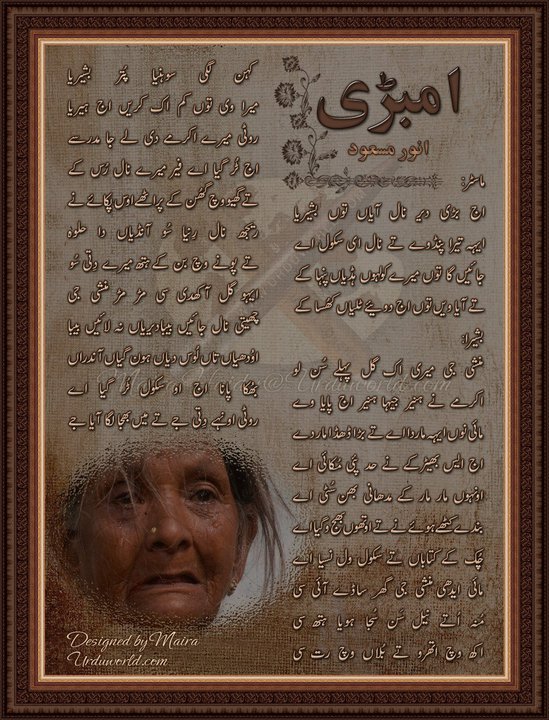 امبڑی
انور مسعود
ماسٹر:
اج بڑی دیر نال آیاں توں بشیریا
ایہہ تیرا پنڈ وے تے نال ای سکول اے
جائیں گا توں میرے کولوں ہڈیاں پنہا کے
تے آیا ویں توں اج دو ویئے ٹلیاں کھنسا کے
بشیرا:
منشی جی میری اک گل پہلے سُن لو
اکرمے نے ہنیر جیہا ہنیر اج پایا وے
مائی نوں ایہہ ماردا اے تے بڑا ڈھڈا مار دے
اج ایس بھیڑکے نے حد پئی مُکائی اے
اونہوں مار مار کے مدھانی بھن سُٹی اے
بندے کٹھے ہوئے نے تے اوتھوں بھج وگیا اے
چُک کے کتاباں تے سکول ول نسیا اے
مائی ایدھی منشی جی گھر ساڈے آئی سی
مُنہ اُتے نیل سَن سُجا ہویا ہتھ سی
اکھ وچ اتھرو تے بُلاں وچ رت سی
کہن لگی سوہنیا پتر بشیریا
میرا وی توں کم اک کریں اج ہیریا
روٹی میرے اکرمے دی لے جا مدرسے
اج فُر ٹُر گیا اے فیر میرے نال رُس کے
تے گھیو وچ گُنھن کے پراٹھے اوس پکائے نے
ریجھ نال رنیا سُو آنڈیاں دا حلوہ
تے پونے وچ بن کے ہتھ میرے دِتی سُو
ایہو گل آکھدی سی مڑ مڑ منشی جی
چھیتی نال جائیں بیبا دیریاں نہ لائیں بیبا
اوہدیاں تاں لُوس دیاں ہون گیاں آندراں
بھکا بھانا اج او سکول ٹُر گیا اے
روٹی اونہے دِتی جے تے میں بھجا لگا آیا جے
Maira@Urduworld.com
Designed by Maira
Urduworld.com